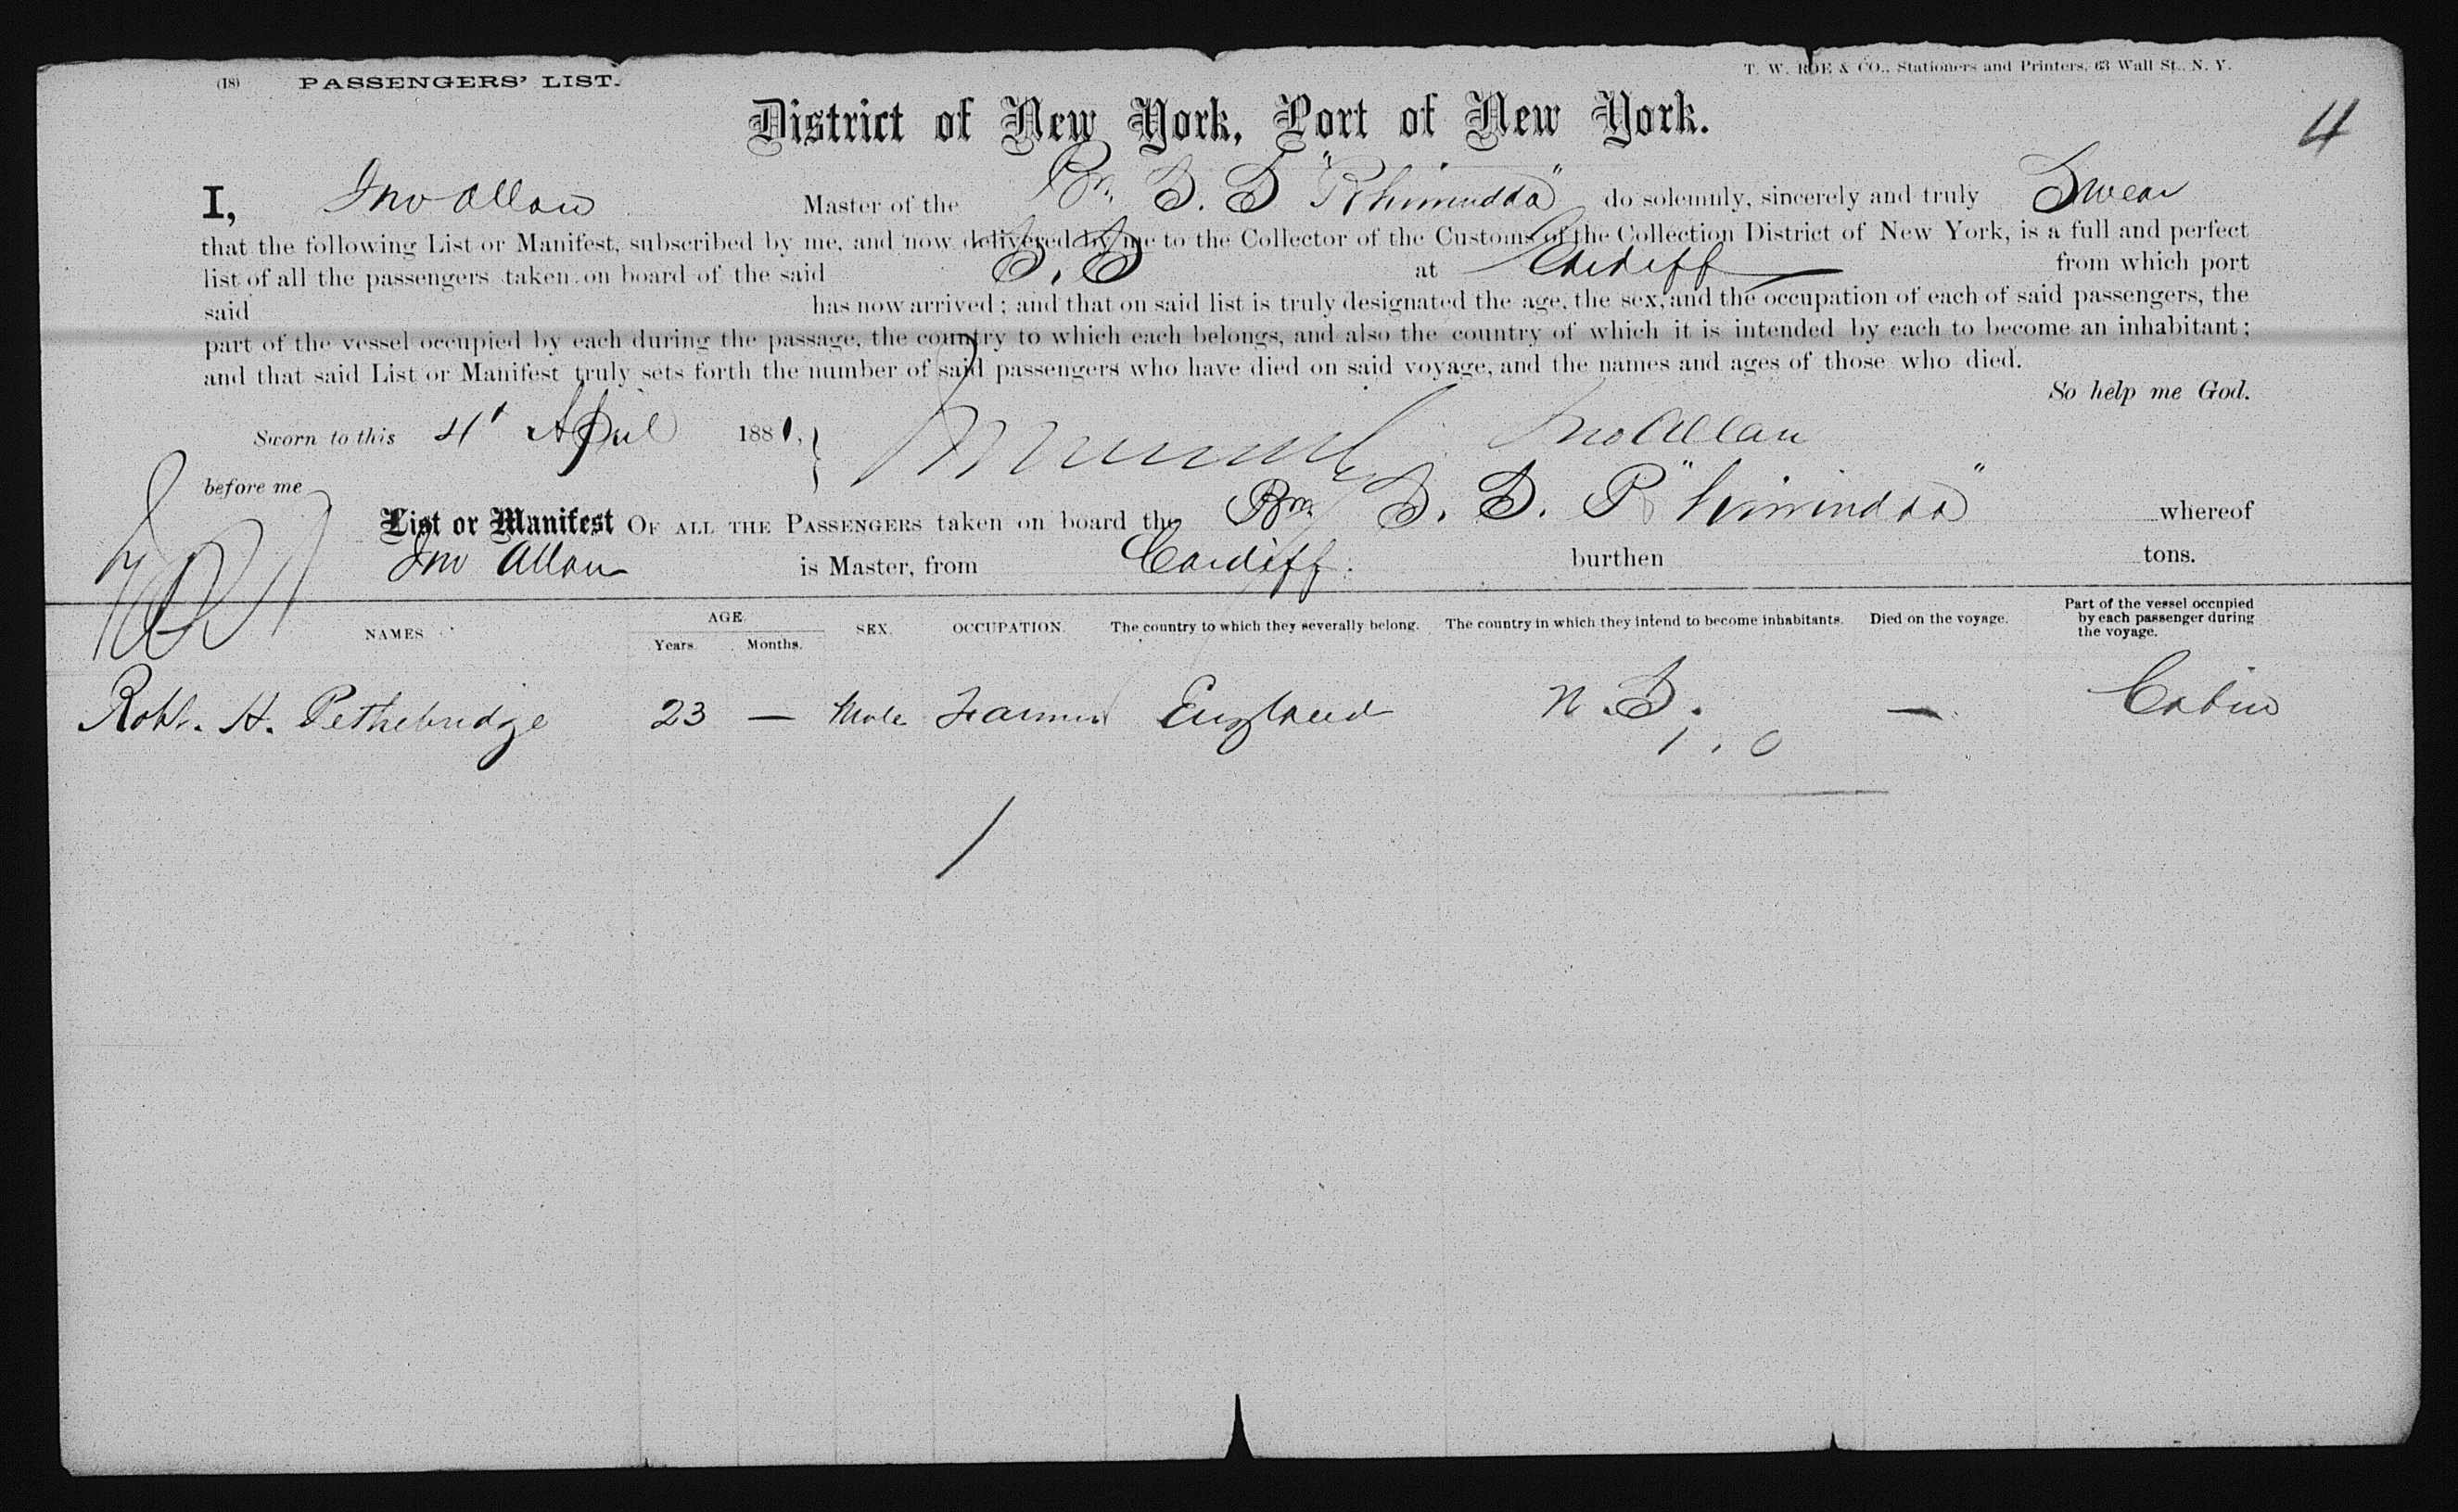 (18) PASSENGERS' LIST. T. W. ROE & CO., Stationers and Printers, 63 Wall St., N. Y.
District of New York, Port of New York. 4
I, Jno Allan Master of the Br. S. S "Rhiwindda" do solemnly, sincerely and truly Swear
that the following List or Manifest, subscribed by me, and now delivered by me to the Collector of the Customs of the Collection District of New York, is a full and perfect
list of all the passengers taken on board of the said S. S at Cardiff from which port
said has now arrived; and that on said list is truly designated the age, the sex, and the occupation of each of said passengers, the
part of the vessel occupied by each during the passage, the country to which each belongs, and also the country of which it is intended by each to become an inhabitant;
and that said List or Manifest truly sets forth the number of said passengers who have died on said voyage, and the names and ages of those who died.
So help me God.
Sworn to this 4' April 1881, } Jno Allan
before me
List or Manifest OF ALL THE PASSENGERS taken on board the Br. S. S. R"hiwindda" whereof
Jno Allan is Master, from Cardiff. burthen tons.
NAMES AGE. Years. Months. SEX. OCCUPATION. The country to which they severally belong. The country in which they intend to become inhabitants. Died on the voyage. Part of the vessel occupied by each passenger during the voyage.
Robt. H. Pethebridge 23 — Male Farmer England U. S. — Cabin
1. 0
1